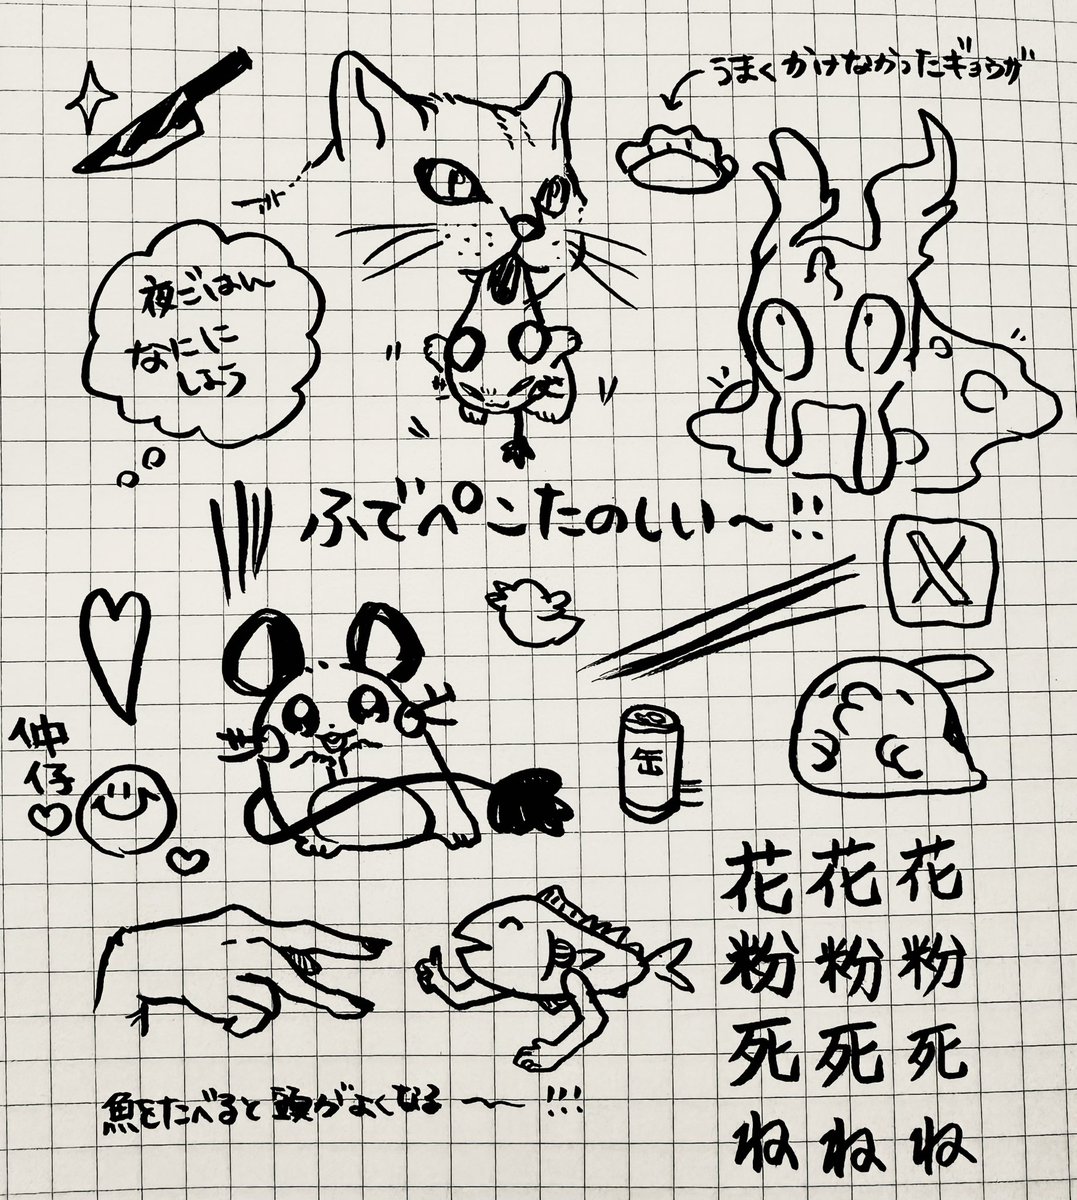 うまくかけなかったギョウザ
夜ごはん
なにに
しよう
ふでぺこたのしい〜!!
X
仲
仔
缶
花花花
粉粉粉
死死死
ねねね
魚をたべると頭がよくなる〜!!!